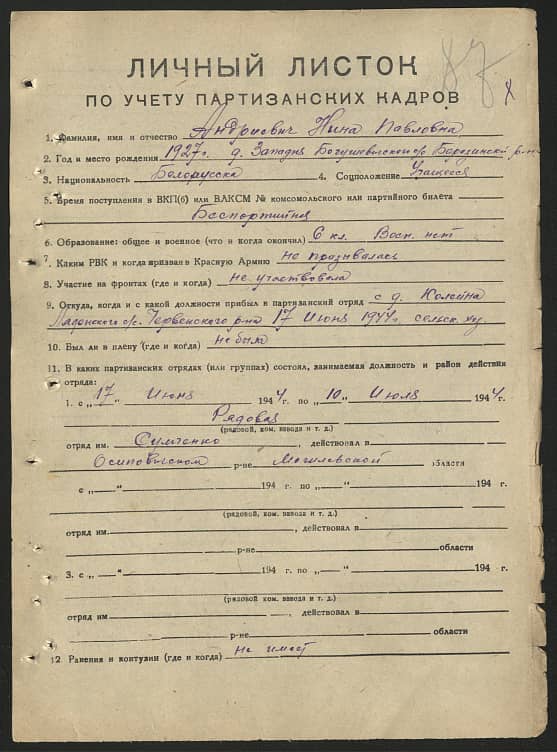 ЛИЧНЫЙ ЛИСТОК
ПО УЧЕТУ ПАРТИЗАНСКИХ КАДРОВ
1. Фамилия, имя и отчество Андриевич Нина Павловна
2. Год и место рождения 1927 г. д. Западня Богушевического с/с Березинский р-н
3. Национальность Белорусска 4. Соцположение Учащаяся
5. Время поступления в ВКП(б) или ВЛКСМ № комсомольского или партийного билета
Беспартийная
6. Образование: общее и военное (что и когда окончил) 6 кл. Воен. нет
7. Каким РВК и когда призван в Красную Армию не призывалась
8. Участие на фронтах (где и когда) не участвовала
9. Откуда, когда и с какой должности прибыл в партизанский отряд с д.
с/с. Червенского р-на 17 Июня 1944 г. сельск. хоз.
10. Был ли в плену (где и когда) не была
11. В каких партизанских отрядах (или группах) состоял, занимаемая должность и район действия
отряда:
1. с „17" Июня 1944 г. по „10" Июля 1944 г.
Рядовая
(рядовой, ком. взвода и т. д.)
отряд им. Симченко, действовал в
Осиповическом р-не Могилевской области
с „ " 194 г. по „ " 194 г.
(рядовой, ком. взвода и т. д.)
отряд им. , действовал в
р-не области
3. с „ " 194 г. по „ " 194 г.
(рядовой, ком. взвода и т. д.)
отряд им , действовал в
р-не области
12. Ранения и контузии (где и когда) не имеет